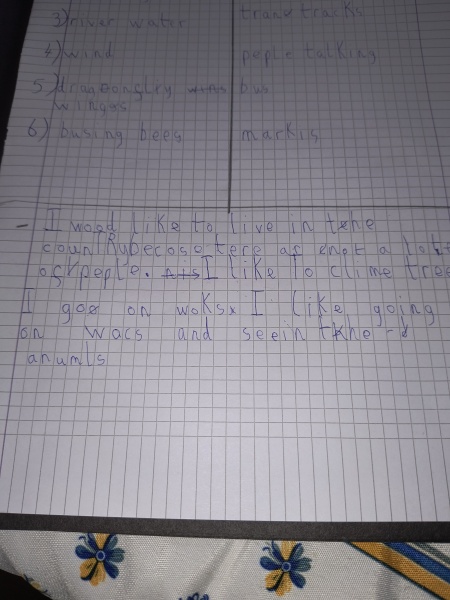 3) river water tranx tracks
4) wind peple talking
5) dragonfly bus
wings
6) busing bees markis
- I wood like to live in the
countRy becose tere as not a lot
of peple. I like to clime tree
I goe on woks I like going
on wacs and seein the
anumls